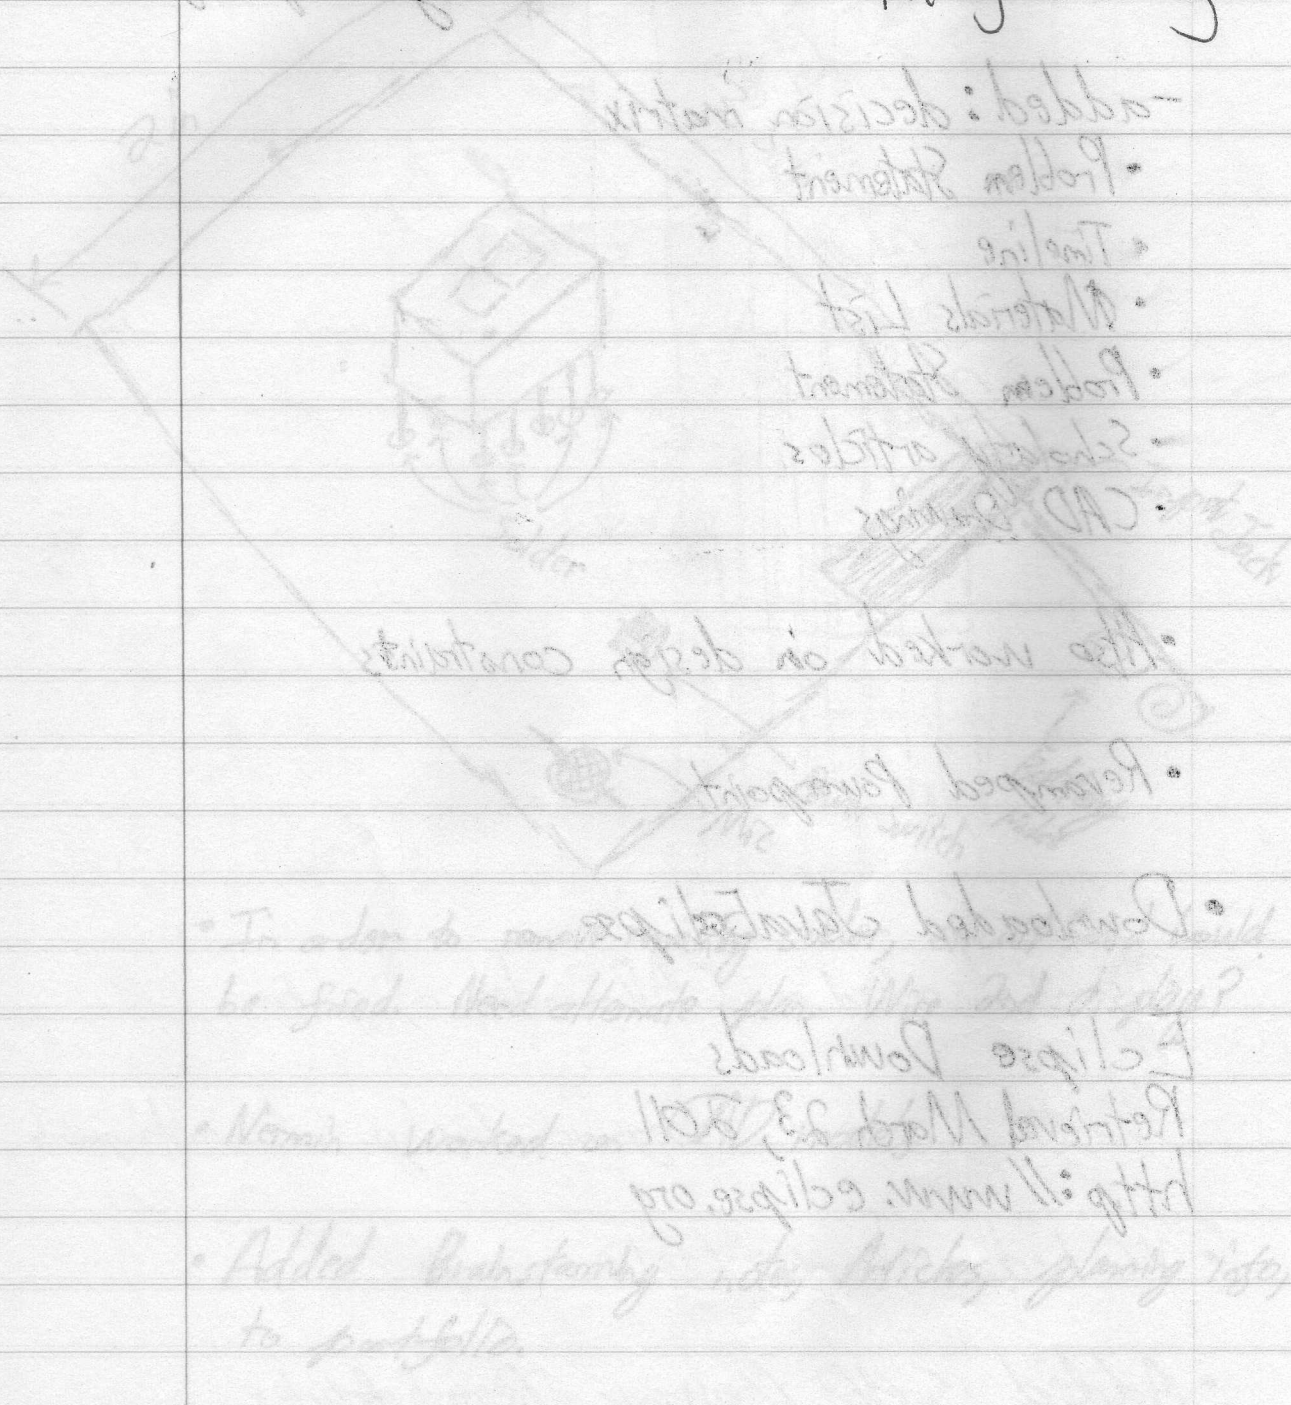 -added: decision matrix
• Problem Statement
• Timeline
• Materials List
• Problem Statement
- Scholarly articles
• CAD Drawings
• Also worked on design constraints
• Revamped Powerpoint
• Downloaded Java Eclipse
Eclipse Downloads
Retrieved March 23, 2011
http://www.eclipse.org
2 in
Solder
Input Jack
Mic
switch
• In order to
be fried. Need alternate plan. Wire 2nd display?
• Nermin worked on
• Added Brainstorming notes, Articles, planning info,
to portfolio.